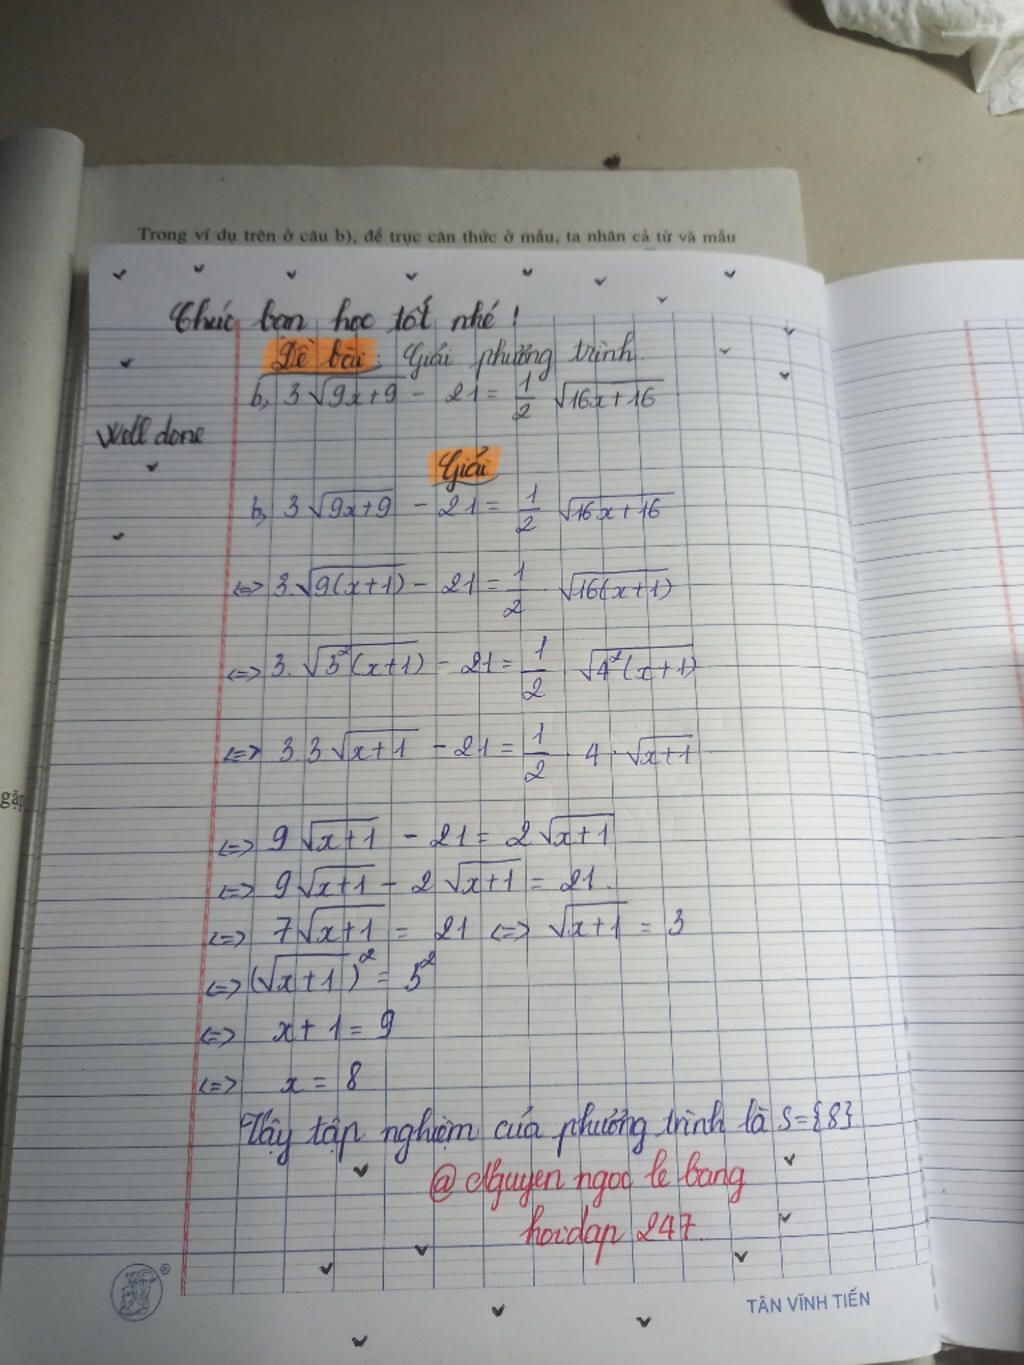 Trong ví dụ trên ở câu b), để trục căn thức ở mẫu, ta nhân cả tử và mẫu
Chúc bạn học tốt nhé !
Đề bài : Giải phương trình
b, 3√(9x+9) - 21 = 1/2 √(16x+16)
Well done
Giải
b, 3√(9x+9) - 21 = 1/2 √(16x+16)
<=> 3.√(9(x+1)) - 21 = 1/2 . √(16(x+1))
<=> 3.√(3²(x+1)) - 21 = 1/2 . √(4²(x+1))
<=> 3.3√(x+1) - 21 = 1/2 . 4 . √(x+1)
gặp
<=> 9√(x+1) - 21 = 2√(x+1)
<=> 9√(x+1) - 2√(x+1) = 21.
<=> 7√(x+1) = 21 <=> √(x+1) = 3
<=> (√(x+1))² = 3²
<=> x+1 = 9
<=> x = 8
Vậy tập nghiệm của phương trình là S={8}
@ Nguyen ngoc le bang
hoidap 247.
®
TÂN VĨNH TIẾN